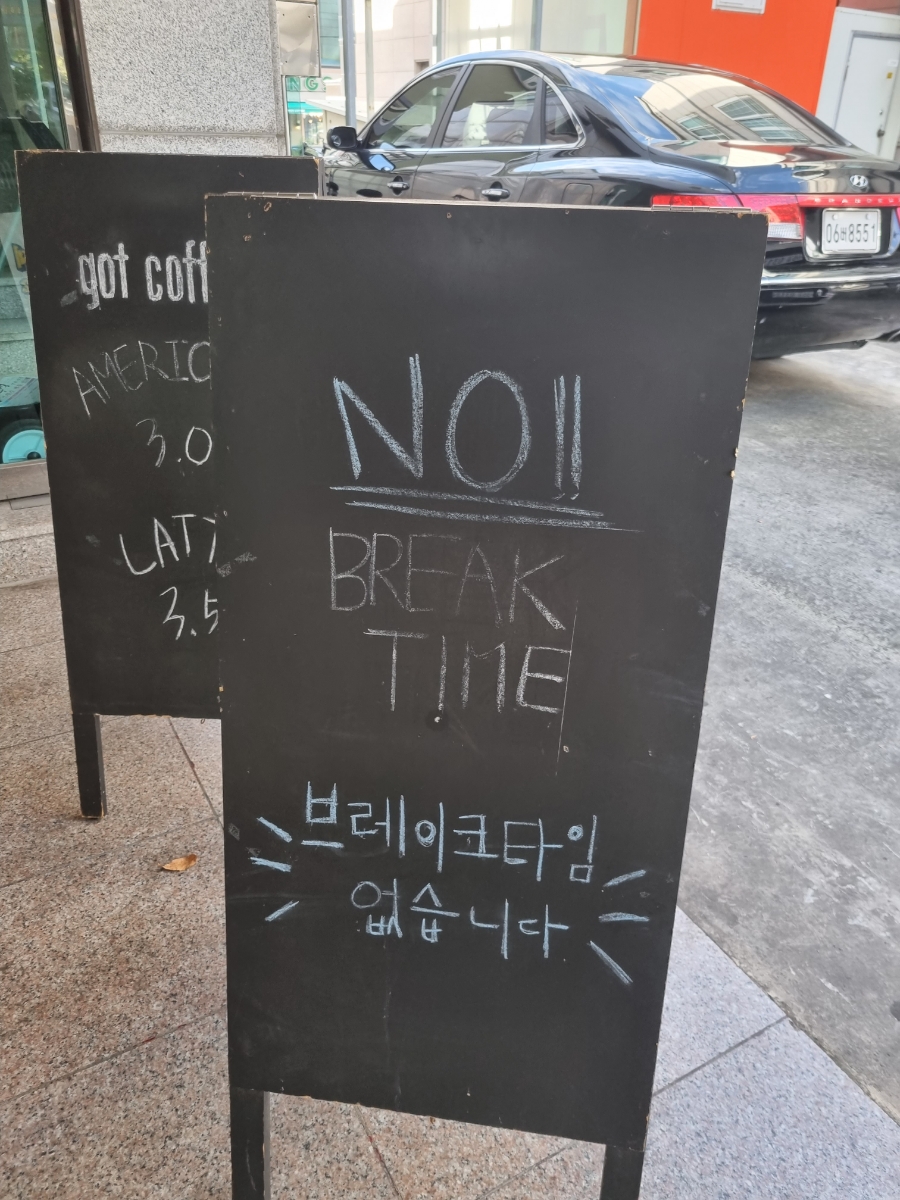 got coff
AMERIC
3.0
LATT
3.5
NO!!
BREAK
TIME
브레이크타임
없습니다
GRANDEUR
06버8551